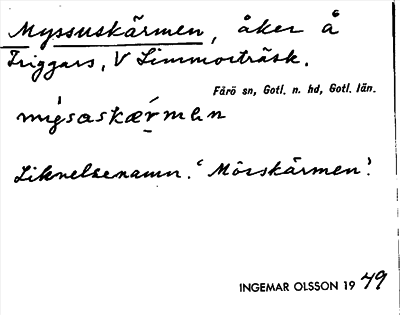 Myssuskärmen, åker å
Friggars, V Limmorträsk.
Fårö sn, Gotl. n. hd, Gotl. län.
mi̍sasḱærmen
Liknelsenamn. 'Mösskärmen'.
INGEMAR OLSSON 19 49